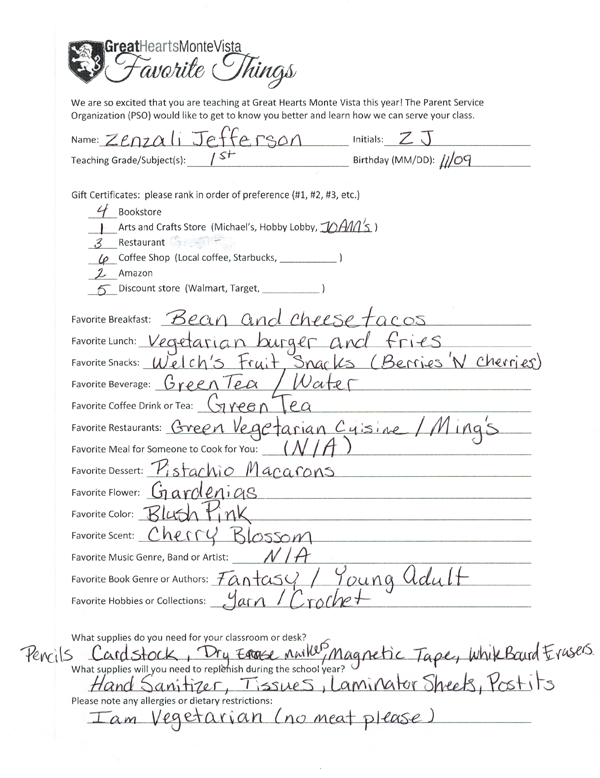 GreatHeartsMonteVista
Favorite Things
We are so excited that you are teaching at Great Hearts Monte Vista this year! The Parent Service
Organization (PSO) would like to get to know you better and learn how we can serve your class.
Name: Zenzali Jefferson Initials: ZJ
Teaching Grade/Subject(s): 1st Birthday (MM/DD): 11/09
Gift Certificates: please rank in order of preference (#1, #2, #3, etc.)
4 Bookstore
1 Arts and Crafts Store (Michael's, Hobby Lobby, JOAnn's)
3 Restaurant
6 Coffee Shop (Local coffee, Starbucks, __________ )
2 Amazon
5 Discount store (Walmart, Target, __________ )
Favorite Breakfast: Bean and cheese tacos
Favorite Lunch: Vegetarian burger and fries
Favorite Snacks: Welch's Fruit Snacks (Berries 'N cherries)
Favorite Beverage: Green Tea / Water
Favorite Coffee Drink or Tea: Green Tea
Favorite Restaurants: Green Vegetarian Cuisine / Ming's
Favorite Meal for Someone to Cook for You: (N/A)
Favorite Dessert: Pistachio Macarons
Favorite Flower: Gardenias
Favorite Color: Blush Pink
Favorite Scent: Cherry Blossom
Favorite Music Genre, Band or Artist: N/A
Favorite Book Genre or Authors: Fantasy / Young Adult
Favorite Hobbies or Collections: Yarn / Crochet
What supplies do you need for your classroom or desk?
Pencils Cardstock, Dry Erase Markers, Magnetic Tape, White Board Erasers
What supplies will you need to replenish during the school year?
Hand Sanitizer, Tissues, Laminator Sheets, Postits
Please note any allergies or dietary restrictions:
I am Vegetarian (no meat please)